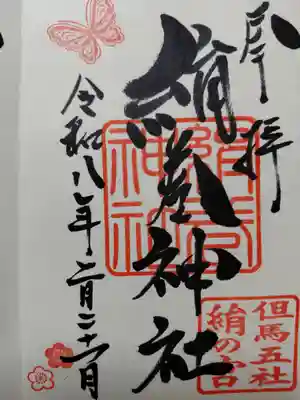 奉拝
絹巻神社
令和八年二月二十一日
絹巻
神社
但馬五社
絹の宮